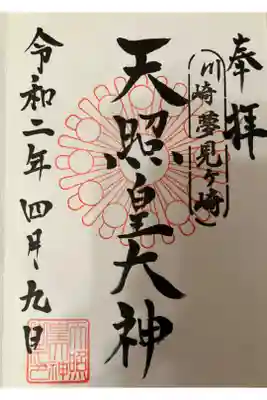 奉拝
（川崎夢見ヶ崎）
天照皇大神
令和二年四月九日